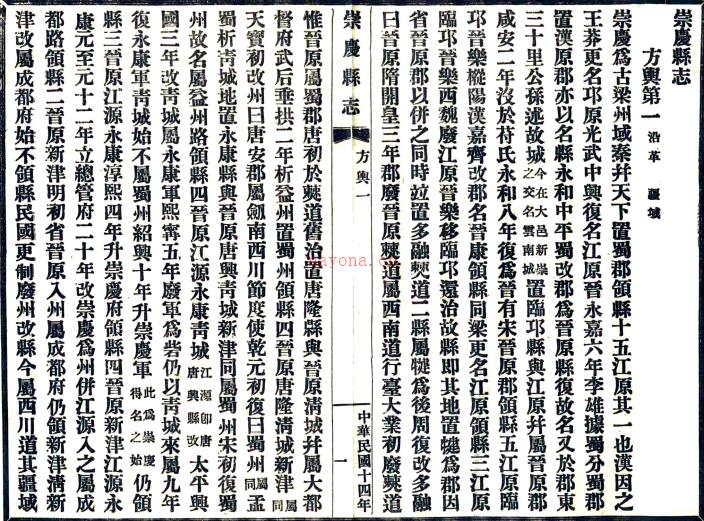 崇慶縣志
方輿第一 沿革 疆域
崇慶爲古梁州域秦幷天下置蜀郡領縣十五江原其一也漢因之
王莽更名邛原光武中興復名江原晉永嘉六年李雄據蜀分蜀郡
置漢原郡亦以名縣永和中平蜀改郡爲晉原縣復故名又於郡東
三十里公孫述故城今在大邑新崇之交名雲南城置臨邛縣與江原幷屬晉原郡
咸安二年沒於苻氏永和八年復爲晉有宋晉原郡領縣五江原臨
邛晉樂樅陽漢嘉齊改郡名晉康領縣同梁更名江原領縣三江原
臨邛晉樂西魏廢江原晉樂移臨邛還治故縣卽其地置犍爲郡因
省晉原郡以併之同時竝置多融僰道二縣屬犍爲後周復改多融
曰晉原隋開皇三年郡廢晉原僰道屬西南道行臺大業初廢僰道
崇慶縣志
方輿一
一
中華民國十四年
惟晉原屬蜀郡唐初於僰道舊治置唐隆縣與晉原淸城幷屬大都
督府武后垂拱二年析益州置蜀州領縣四晉原唐隆淸城新津屬同
天寶初改州曰唐安郡屬劍南西川節度使乾元初復曰蜀州屬同孟
蜀析靑城地置永康縣與晉原唐興靑城新津同屬蜀州宋初復蜀
州故名屬益州路領縣四晉原江源永康靑城江源卽唐唐興縣改太平興
國三年改靑城屬永康軍熙寧五年廢軍爲砦仍以靑城來屬九年
復永康軍靑城始不屬蜀州紹興十年升崇慶軍此爲崇慶得名之始仍領
縣三晉原江源永康淳熙四年升崇慶府領縣四晉原新津江源永
康元至元十二年立總管府二十年改崇慶爲州併江源入之屬成
都路領縣二晉原新津明初省晉原入州屬成都府仍領新津淸新
津改屬成都府始不領縣民國更制廢州改縣今屬西川道其疆域
mayona.com